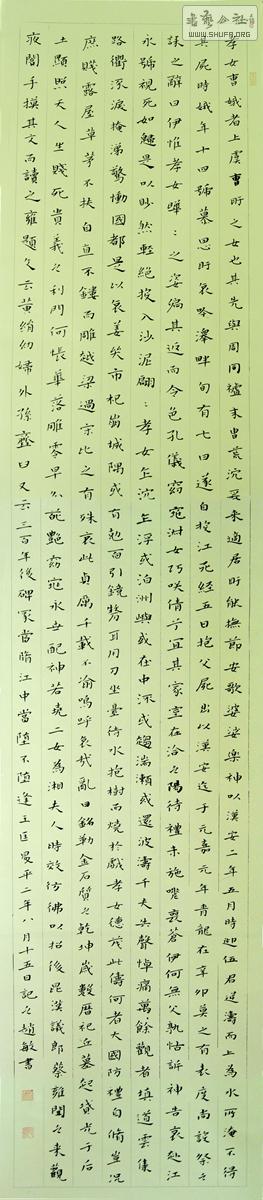 孝女曹娥者上虞曹盱之女也其先與周同墟末胄荒沉爰來適居盱能撫節安歌婆娑樂神以漢安二年五月時迎伍君逆濤而上為水所淹不得
其屍時娥年十四號慕思盱哀吟澤畔旬有七日遂自投江死經五日抱父屍出以漢安迄于元嘉元年青龍在辛卯莫之有表度尚設祭之
誄之辭曰伊惟孝女曄=之姿偏其返而令色孔儀窈窕淑女巧咲倩兮宜其家室在洽之陽待禮未施嗟喪蒼伊何無父孰怙訴神告哀赴江
永號視死如歸是以眇然輕絕投入沙泥翩=孝女乍沉乍浮或泊洲嶼或在中流或趨湍瀨或還波濤千夫失聲悼痛萬餘觀者填道雲集
路衢流淚掩涕驚慟國都是以哀姜哭市杞崩城隅或有剋面引鏡剺耳用刀坐臺待水抱樹而燒於戲孝女德茂此儔何者大國防禮自脩豈況
庶賤露屋草茅不扶自直不鏤而雕越梁過宋比之有殊哀此貞厲千載不渝嗚呼哀哉亂曰銘勒金石質之乾坤歲數曆祀丘墓起墳光于后
土顯照天人生賤死貴義之利門何悵華落雕零早分葩艷窈窕永世配神若堯二女為湘夫人時效彷彿以招後昆漢議郎蔡雍聞之來觀
夜闇手摸其文而讀之雍題文云黃絹幼婦外孫虀臼又云三百年後碑冢當墮江中當墮不墮逢王匡昇平二年八月十五日記之趙敏書
www.SHUFA.ORG